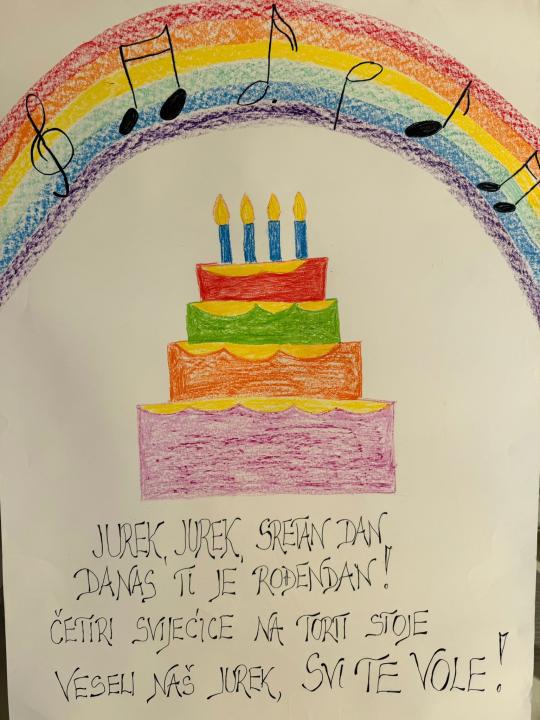 JUREK, JUREK, SRETAN DAN,
DANAS TI JE ROĐENDAN!
ČETIRI SVIJEĆICE NA TORTI STOJE
VESELI NAŠ JUREK, SVI TE VOLE!